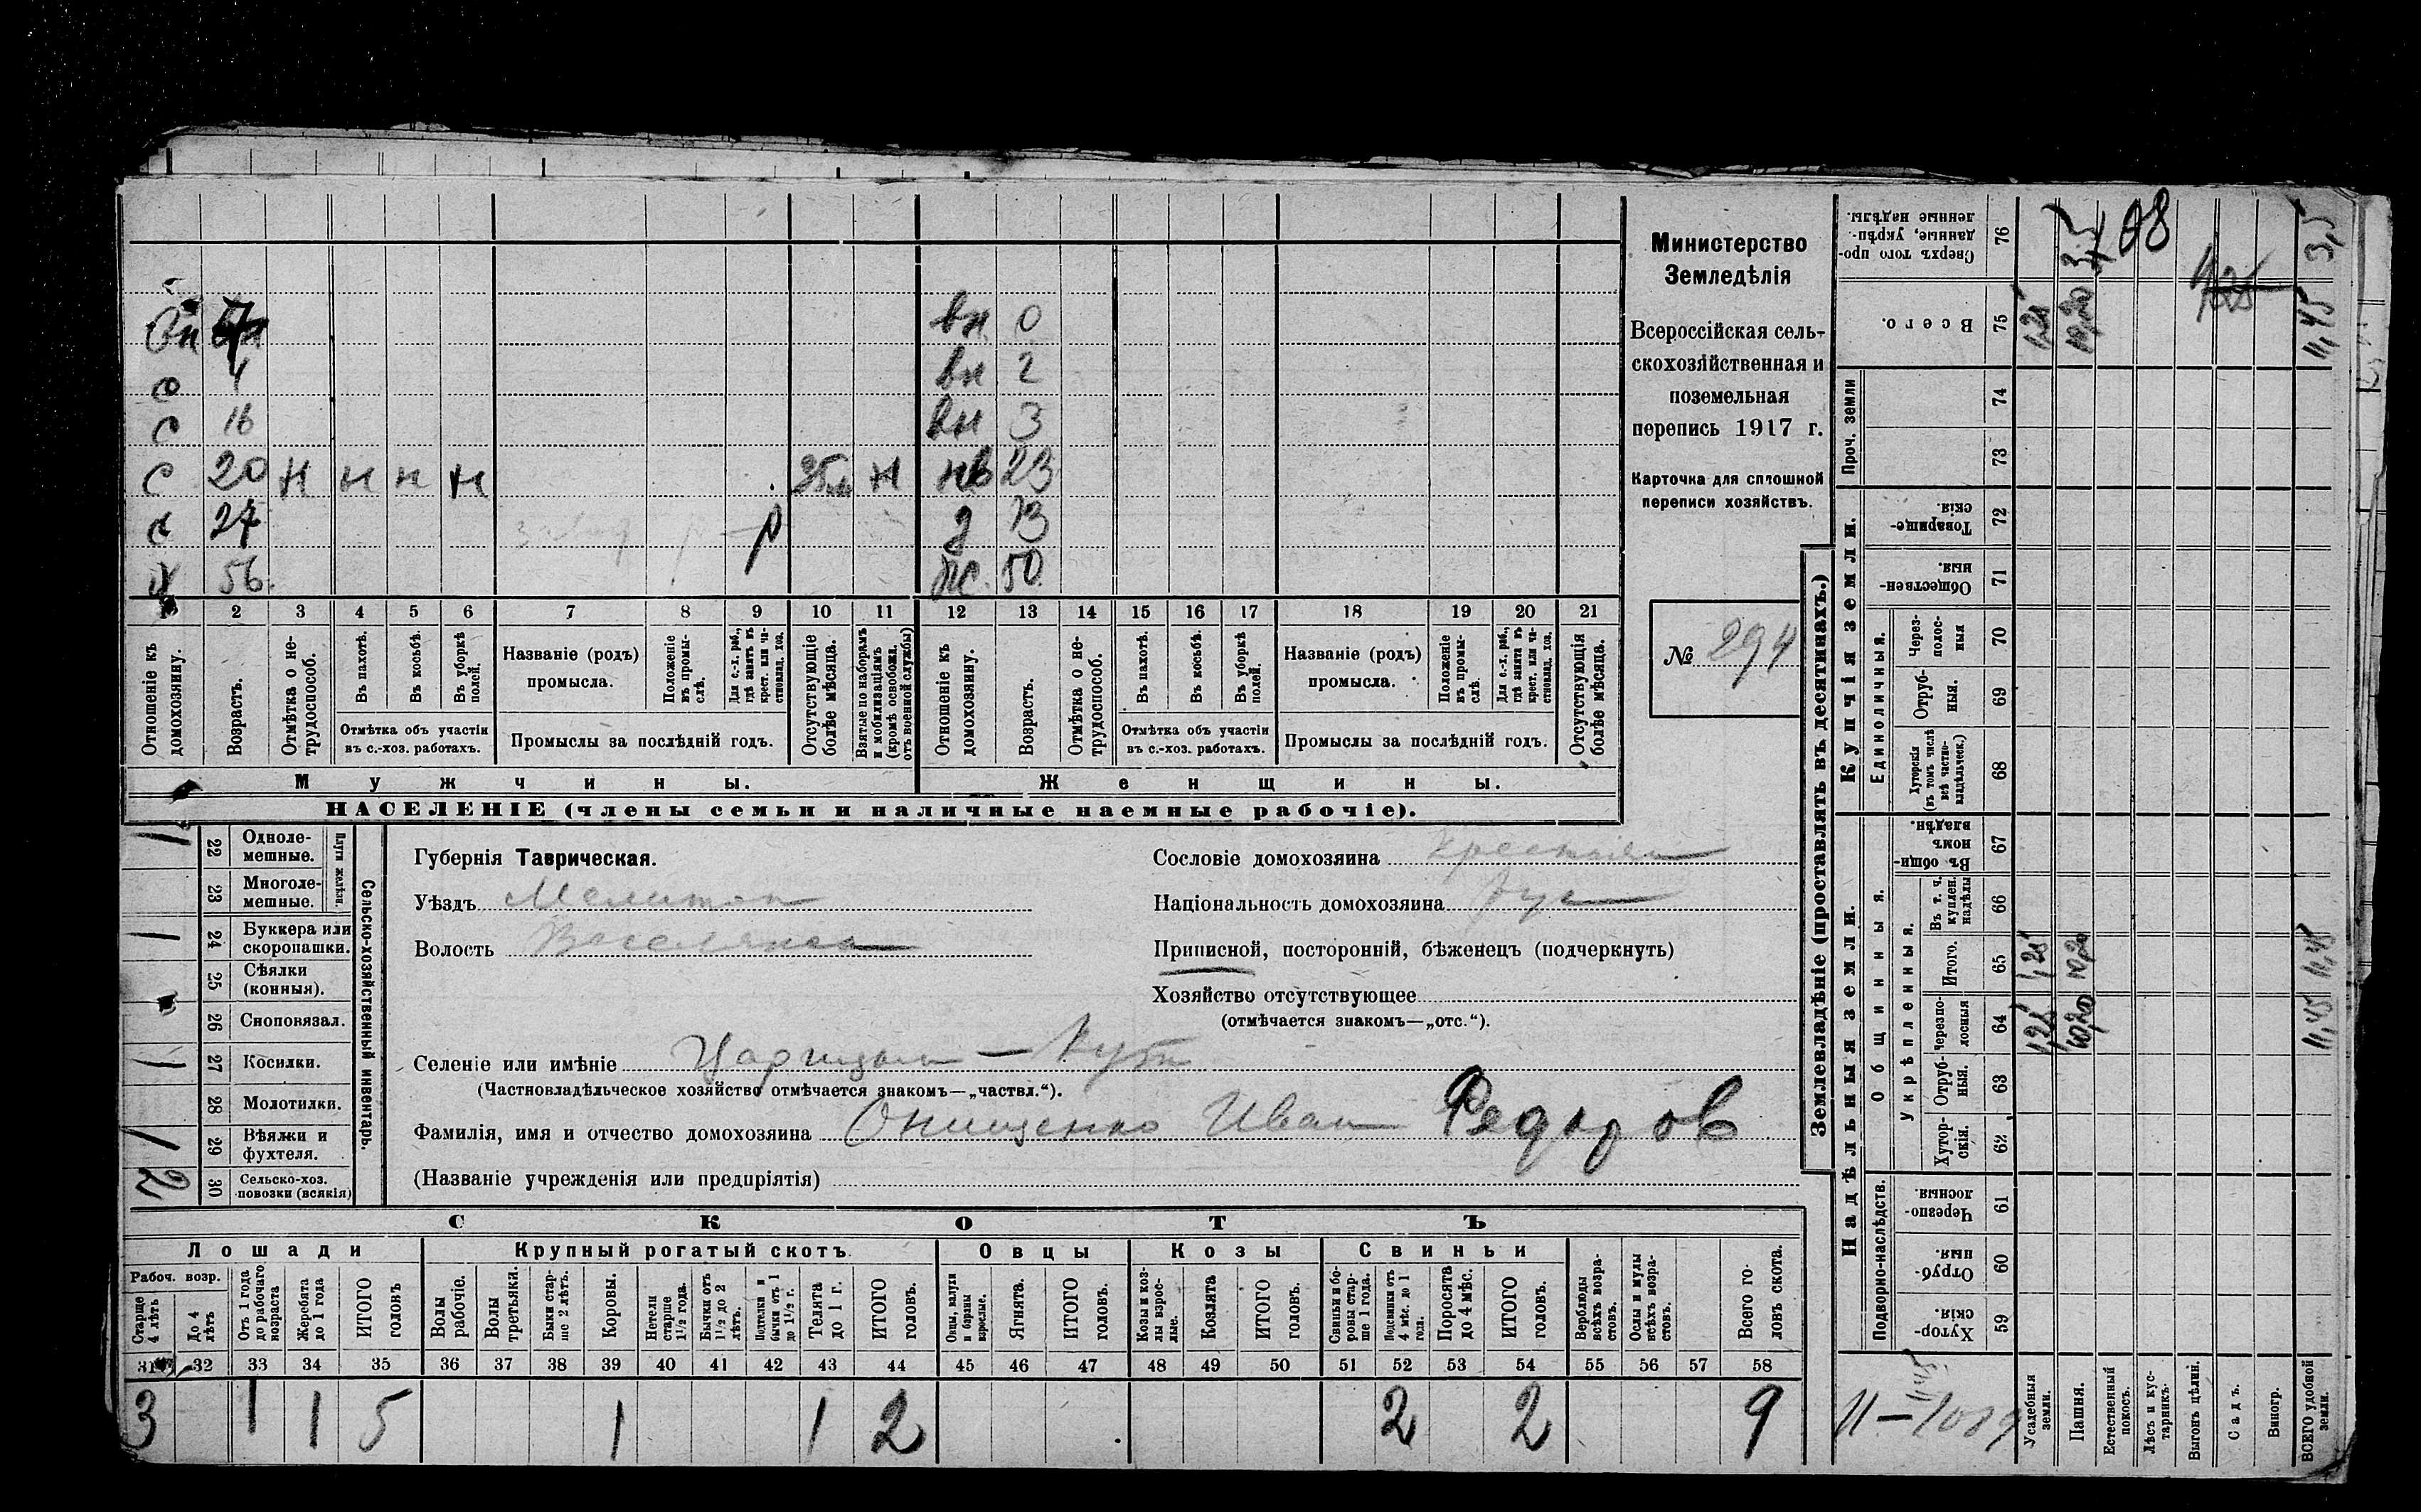 Министерство
Земледѣлія
Всероссійская сель-
скохозяйственная и
поземельная
перепись 1917 г.
Карточка для сплошной
переписи хозяйствъ.
№ 294
вн 0
с 4 вн 2
с 16 вн 3
с 20 н н н н н нв 23
с 27 р д 13
х 56 ж. 50
1 2 3 4 5 6 7 8 9 10 11 12 13 14 15 16 17 18 19 20 21
Отношеніе къ домохозяину.
Возрастъ.
Отмѣтка о не-трудоспособ.
Въ пахотѣ.
Въ косьбѣ.
Въ уборкѣ полей.
Отмѣтка объ участіи
въ с.-хоз. работахъ.
Названіе (родъ)
промысла.
Положеніе въ промы-слѣ.
Для с.-х. раб., гдѣ занятъ въ крест. или ча-стновлад. хоз.
Промыслы за послѣдній годъ.
Отсутствующіе болѣе мѣсяца.
Взятые по наборамъ и мобилизаціямъ (кромѣ освобожд. отъ военной службы)
Отношеніе къ домохозяину.
Возрастъ.
Отмѣтка о не-трудоспособ.
Въ пахотѣ.
Въ косьбѣ.
Въ уборкѣ полей.
Отмѣтка объ участіи
въ с.-хоз. работахъ.
Названіе (родъ)
промысла.
Положеніе въ промы-слѣ.
Для с.-х. раб., гдѣ занята въ крест. или ча-стновлад. хоз.
Промыслы за послѣдній годъ.
Отсутствующія болѣе мѣсяца.
Мужчины. Женщины.
НАСЕЛЕНІЕ (члены семьи и наличные наемные рабочіе).
Сельско-хозяйственный инвентарь.
Плуги желѣзн.
22 Одноле-мешные. 1
23 Многоле-мешные.
24 Буккера или скоропашки. 1
25 Сѣялки (конныя).
26 Сноповязал.
27 Косилки. 1
28 Молотилки.
29 Вѣялки и фухтеля. 1
30 Сельско-хоз. повозки (всякія) 2
Губернія Таврическая.
Уѣздъ Мелитоп
Волость Веселянск
Сословіе домохозяина крестьян
Національность домохозяина рус
Приписной, посторонній, бѣженецъ (подчеркнуть)
Хозяйство отсутствующее
(отмѣчается знакомъ—„отс.“).
Селеніе или имѣніе Царицын — Кут
(Частновладѣльческое хозяйство отмѣчается знакомъ—„частвл.“).
Фамилія, имя и отчество домохозяина Онищенко Иван Федоров
(Названіе учрежденія или предпріятія)
СКОТЪ
Лошади Крупный рогатый скотъ Овцы Козы Свиньи
Рабоч. возр.
Старше 4 лѣтъ
До 4 лѣтъ
Отъ 1 года до рабочаго возраста
Жеребята до 1 года
ИТОГО головъ
Волы рабочіе.
Волы третьяки.
Быки стар-ше 2 лѣтъ.
Коровы.
Нетели старше 1½ года.
Бычки отъ 1½ до 2 лѣтъ.
Подтелки и бычки отъ 1 до 1½ г.
Телята до 1 г.
ИТОГО головъ.
Овцы, валухи и бараны взрослые.
Ягнята.
ИТОГО головъ.
Козы и коз-лы взрос-лые.
Козлята
ИТОГО головъ.
Свиньи и бо-ровы стар-ше 1 года.
Подсвинки отъ 4 мѣс. до 1 года.
Поросята до 4 мѣс.
ИТОГО головъ.
Верблюды всѣхъ возра-стовъ.
Ослы и мулы всѣхъ возра-стовъ.
Всего го-ловъ скота.
31 32 33 34 35 36 37 38 39 40 41 42 43 44 45 46 47 48 49 50 51 52 53 54 55 56 57 58
3 1 1 5 1 1 2 2 2 9
Землевладѣніе (проставлять въ десятинахъ.)
Надѣльныя земли.
Купчія земли.
Проч. земли
Подворно-наслѣдств.
Общинныя.
Укрѣпленныя.
Единоличныя.
Сверхъ того про-данные, укрѣп-ленные надѣлы. 76
Всего. 75
74
73
Товарище-скія. 72
Обществен-ныя. 71
Через-полос-ныя 70
Отруб-ныя. 69
Хуторскія (въ томъ числѣ всѣ частно-владѣльческ.) 68
Въ общин-номъ владѣн. 67
Въ т. ч. куплен. надѣлы 66
Итого. 65
Черезпо-лосныя 64
Отруб-ныя. 63
Хутор-скія. 62
Черезпо-лосныя 61
Отруб-ныя. 60
Хутор-скія. 59
Усадебныя земли.
1,25 1,25 1,25
Пашня.
10,20 10,20 10,20 3,5
Естественный покосъ.
Лѣсъ и кус-тарникъ.
Выгонъ цѣлин.
Садъ.
Виногр.
ВСЕГО удобной земли.
11,45 11,45 11,45 3,5